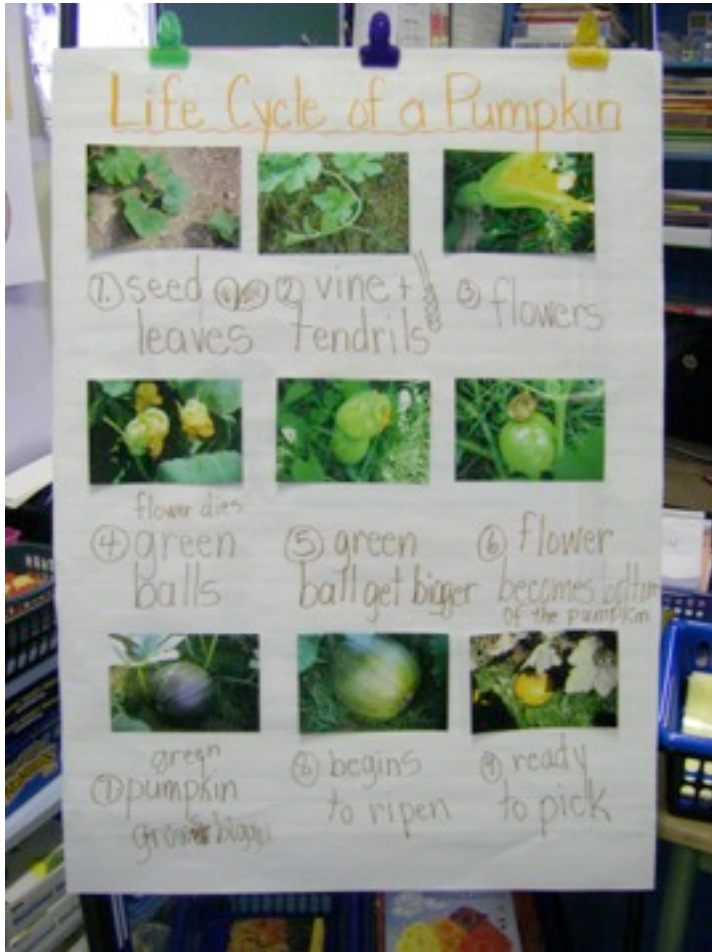 Life Cycle of a Pumpkin
1. seed
leaves
2 vine +
tendrils
3 flowers
flower dies
4 green
balls
5 green
ball get bigger
6 flower
becomes bottom
of the pumpkin
green
7 pumpkin
grows bigger
8 begins
to ripen
9 ready
to pick